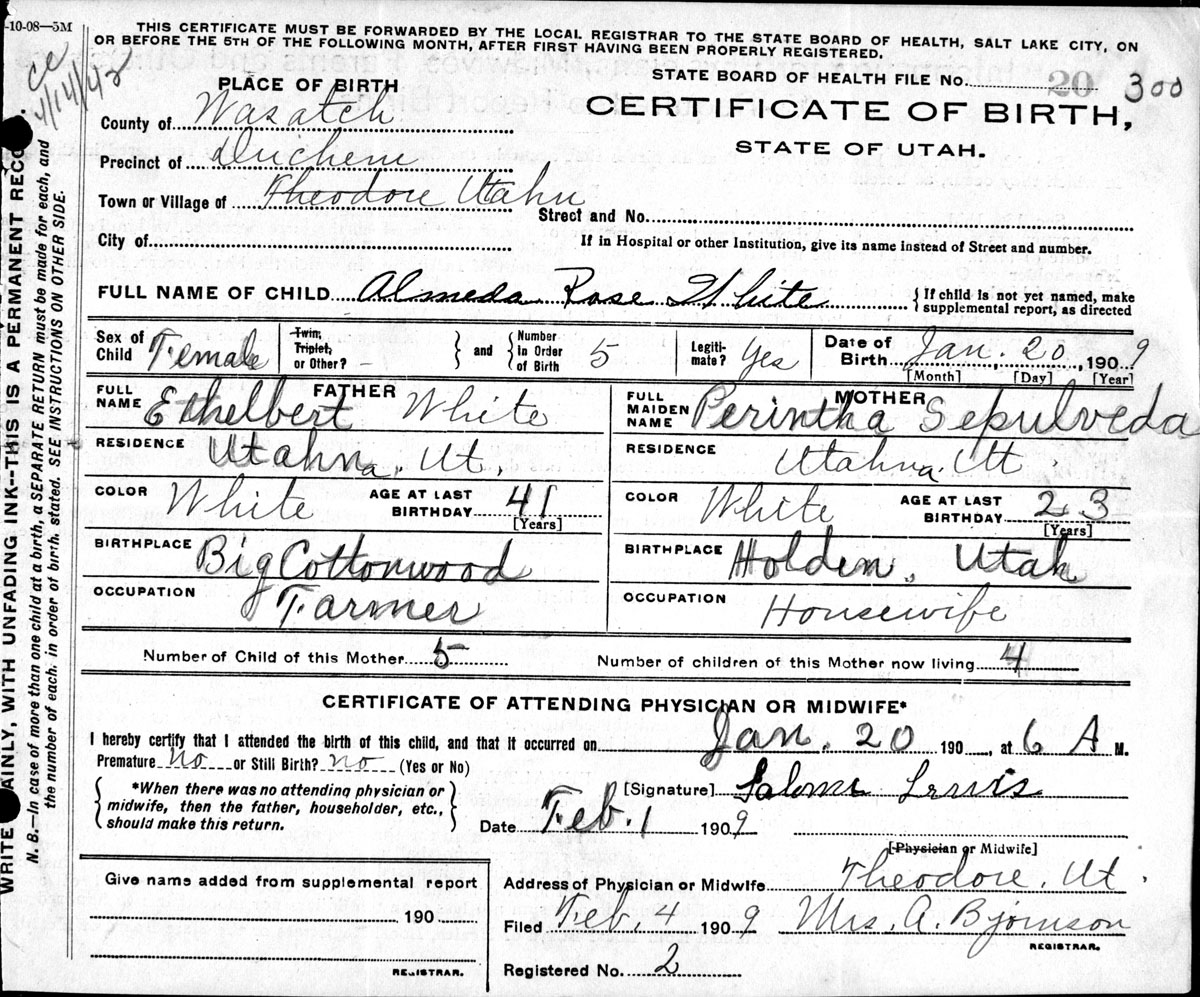 -10-08—5M
THIS CERTIFICATE MUST BE FORWARDED BY THE LOCAL REGISTRAR TO THE STATE BOARD OF HEALTH, SALT LAKE CITY, ON
OR BEFORE THE 5TH OF THE FOLLOWING MONTH, AFTER FIRST HAVING BEEN PROPERLY REGISTERED.
4/14/42
STATE BOARD OF HEALTH FILE No. 20 300
PLACE OF BIRTH
CERTIFICATE OF BIRTH,
STATE OF UTAH.
County of Wasatch
Precinct of
Town or Village of Theodore Utahn
Street and No.
City of
If in Hospital or other Institution, give its name instead of Street and number.
FULL NAME OF CHILD Almeda Rose White
{If child is not yet named, make
supplemental report, as directed
Sex of Child Female
Twin, Triplet, or Other? -
and
Number in Order of Birth 5
Legiti-mate? Yes
Date of Birth Jan. 20, 1909
[Month] [Day] [Year]
FATHER
FULL NAME Ethelbert White
RESIDENCE Utahna. Ut.
COLOR White AGE AT LAST BIRTHDAY 41
[Years]
BIRTHPLACE Big Cottonwood
OCCUPATION Farmer
MOTHER
FULL MAIDEN NAME Perintha Sepulveda
RESIDENCE Utahna. Ut.
COLOR White AGE AT LAST BIRTHDAY 23
[Years]
BIRTHPLACE Holden, Utah
OCCUPATION Housewife
Number of Child of this Mother 5 Number of children of this Mother now living 4
CERTIFICATE OF ATTENDING PHYSICIAN OR MIDWIFE*
I hereby certify that I attended the birth of this child, and that it occurred on Jan. 20 190 , at 6 A M.
Premature no or Still Birth? no (Yes or No)
{*When there was no attending physician or
midwife, then the father, householder, etc.,
should make this return.}
[Signature] Lewis
Date Feb. 1 1909
[Physician or Midwife]
Give name added from supplemental report
190
REGISTRAR.
Address of Physician or Midwife Theodore, Ut.
Filed Feb. 4 1909 Mrs. A. Bjornson
REGISTRAR.
Registered No. 2
WRITE AINLY, WITH UNFADING INK--THIS IS A PERMANENT RECO
N. B.—In case of more than one child at a birth, a SEPARATE RETURN must be made for each, and
the number of each, in order of birth, stated. SEE INSTRUCTIONS ON OTHER SIDE.